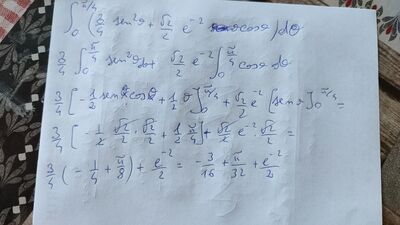 ∫₀^π/4 (3/4 sen²ϑ + √2/2 e⁻² cosϑ) dθ
3/4 ∫₀^π/4 sen²ϑdϑ + √2/2 e⁻² ∫₀^π/4 cosϑ dϑ
3/4 [-1/2 senϑcosϑ + 1/2 ϑ]₀^π/4 + √2/2 e⁻² [senϑ]₀^π/4 =
3/4 [-1/2 · √2/2 · √2/2 + 1/2 π/4] + √2/2 e⁻² · √2/2 =
3/4 (-1/4 + π/8) + e⁻²/2 = -3/16 + π/32 + e⁻²/2